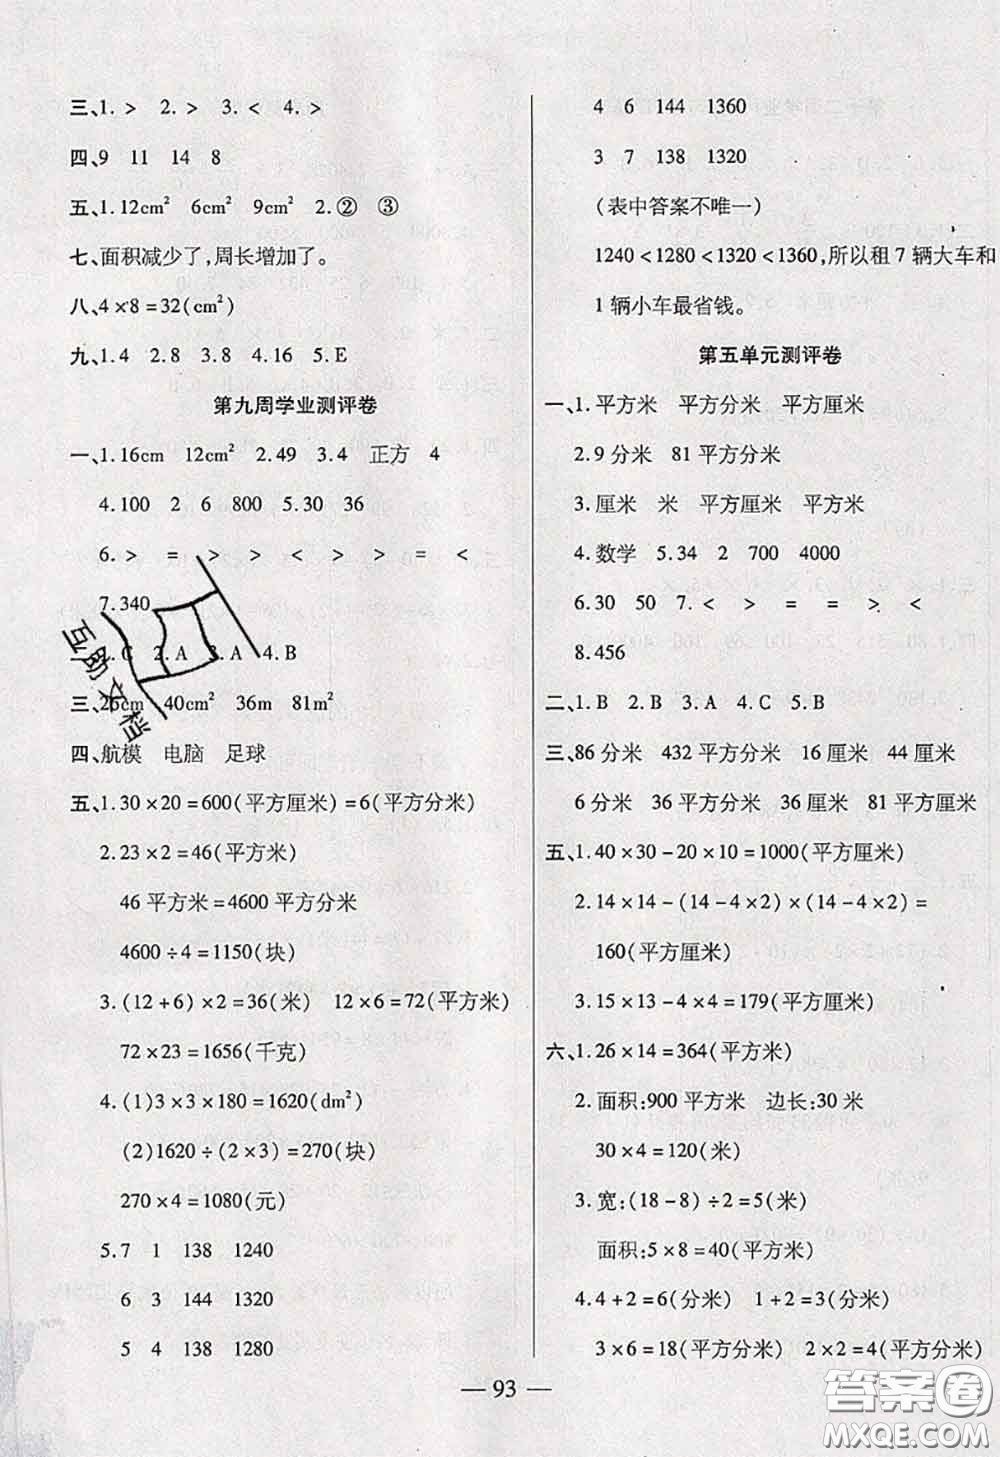 三、1. > 2. > 3. < 4. >
四、9 11 14 8
五、1.12cm² 6cm² 9cm² 2.② ③
七、面积减少了,周长增加了。
八、4×8=32(cm²)
九、1.4 2.8 3.8 4.16 5.E
第九周学业测评卷
一、1.16cm 12cm² 2.49 3.4 正方 4
4.100 2 6 800 5.30 36
6. > = > > < > > = <
7.340
1.C 2.A 3.A 4.B
三、26cm 40cm² 36m 81m²
四、航模 电脑 足球
五、1.30×20=600(平方厘米)=6(平方分米)
2.23×2=46(平方米)
46平方米=4600平方分米
4600÷4=1150(块)
3.(12+6)×2=36(米) 12×6=72(平方米)
72×23=1656(千克)
4.(1)3×3×180=1620(dm²)
(2)1620÷(2×3)=270(块)
270×4=1080(元)
5.7 1 138 1240
6 3 144 1320
5 4 138 1280
4 6 144 1360
3 7 138 1320
(表中答案不唯一)
1240<1280<1320<1360,所以租7辆大车和
1辆小车最省钱。
第五单元测评卷
一、1.平方米 平方分米 平方厘米
2.9分米 81平方分米
3.厘米 米 平方厘米 平方米
4.数学 5.34 2 700 4000
6.30 50 7. < > = = > <
8.456
二、1.B 2.B 3.A 4.C 5.B
三、86分米 432平方分米 16厘米 44厘米
6分米 36平方分米 36厘米 81平方厘米
五、1.40×30-20×10=1000(平方厘米)
2.14×14-(14-4×2)×(14-4×2)=
160(平方厘米)
3.15×13-4×4=179(平方厘米)
六、1.26×14=364(平方米)
2.面积:900平方米 边长:30米
30×4=120(米)
3.宽:(18-8)÷2=5(米)
面积:5×8=40(平方米)
4.4+2=6(分米) 1+2=3(分米)
3×6=18(平方分米) 2×2=4(平方分米)
— 93 —
互助文档
答案圈
MXQE.COM